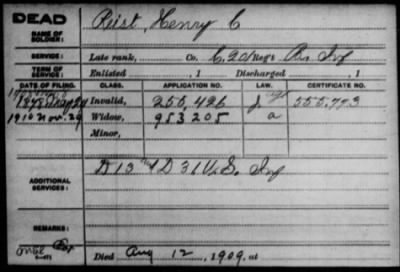 DEAD
NAME OF SOLDIER:
Reist, Henry C
SERVICE:
Late rank, Co. C, 201 Reg't Pa Inf
TERM OF SERVICE
Enlisted , 1 Discharged , 1
DATE OF FILING. CLASS. APPLICATION NO. LAW. CERTIFICATE NO.
Invalid, 256,426 555,773
1910 Nov. 29 Widow, 953205 a
Minor,
ADDITIONAL SERVICES:
D 13 D 31 U.S. Inf
REMARKS:
Died Aug 12, 1909, at